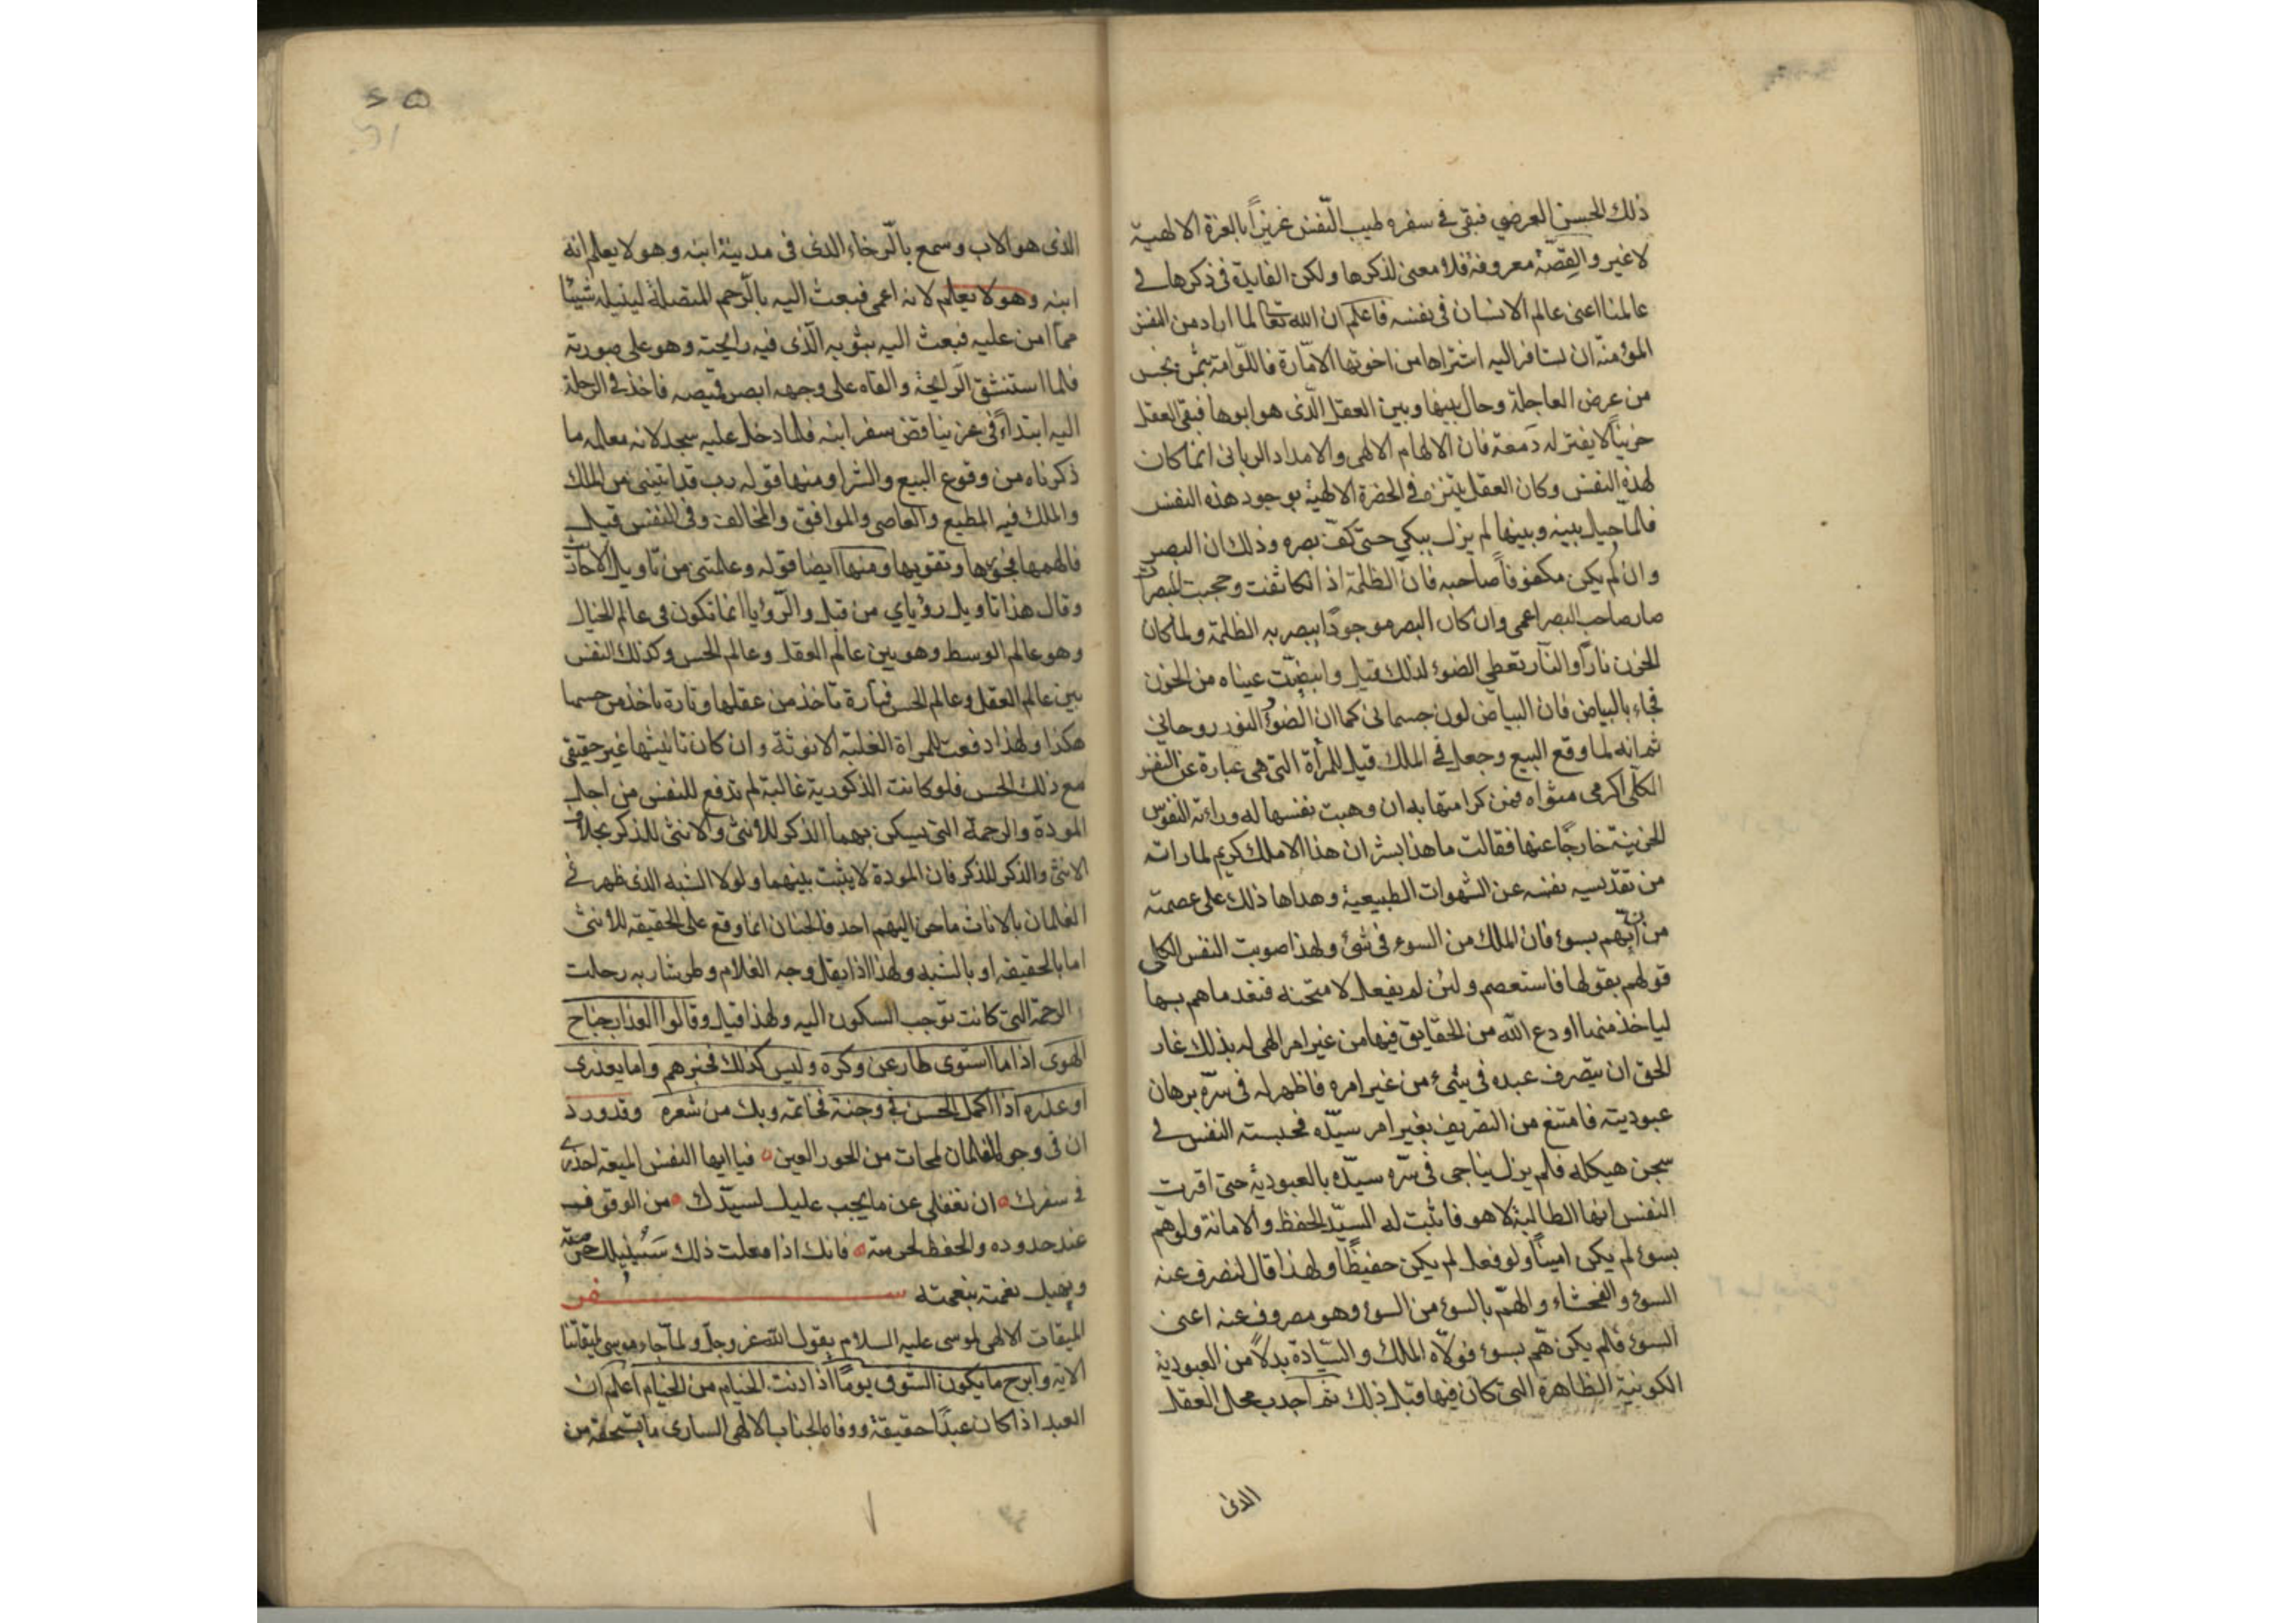 ذلك الحسن العرضي فبقى في سفره طيب النّفس عزيزاً بالعزة الالهية
لاغير والقِصّة معروفة فلا معنى لذكرها ولكن الفايدة في ذكرها في
عالمنا اعنى عالم الانسان فى نفسه فاعلم ان الله تعالى لما اراد من النفس
المؤمنة ان تسافر اليه اشتراها من اخوتها الامّارة واللّوامة بثمن بخس
من عرض العاجلة وحال بينها وبين العقل الّذى هو ابوها فبقى العقل
حزيناً لا يفتر له دمعة فان الالهام الالهى والامداد الربانى انما كان
لهذه النفس وكان العقل يتنزه في الحضرة الالهية بوجود هذه النفس
فلمّا حيل بينه وبينها لم يزل يبكي حتى كفّ بصره وذلك ان البصر
وان لم يكن مكفوفاً صاحبه فان الظلمة اذا تكاثفت وحجبت المبصرات
صار صاحب البصر اعمى وان كان البصر موجودًا يبصر به الظلمة ولما كان
الحزن نارًا والنّار تعطى الضوء لذلك قيل وابيضّت عيناه من الحزن
فجاء بالبياض فان البياض لون جسمانى كما ان الضوء النور روحانى
ثم انه لما وقع البيع وجعل في الملك قيل للمرأة التى هى عبارة عن النفس
الكلّى اكرمى مثواه فمن كرامتها به ان وهبت نفسها له وراءته النفوس
الجزيية خارجًا عنها فقالت ما هذا بشر ان هذا الا ملك كريم لما راته
من تقديسه نفسه عن الشهوات الطبيعية وهداها ذلك على عصمته
من ان يهم بسوء فان الملك من السوء فى شئ ولهذا صوبت النفس الكلى
قولهم بقولها فاستعصم ولئن لم يفعل لامتحنه فنفد ما هم بها
لياخذ منها ما اودع الله من الحقايق فيها من غير امر الهى له بذلك غار
الحق ان يتصرف عبده فى شئ من غير امره فاظهر له فى سرّه برهان
عبوديته فامتنع من التصريف بغير امر سيّده فحبسته النفس في
سجن هيكله فلم يزل يناجى فى سرّه سيّده بالعبودية حتى اقرت
النفس انها الطالبة لا هو فاثبت له السيّد الحفظ والامانة ولو هم
بسوء لم يكن امينًا ولو فعل لم يكن حفيظًا ولهذا قال لنصرف عنه
السوء والفحشاء والهمّ بالسوء من السوء وهو مصروف عنه اعنى
السوء فلم يكن همّ بسوء فولّاه الملك والسّيادة بدلاً من العبودية
الكونية الظاهرة التى كان فيها قبل ذلك ثم اجدب محل العقل
الذى
الذى هو الاب وسمع بالرّخاء الذى فى مدينة ابنه وهو لا يعلم انه
ابنه وهو لا يعلم لانه اعمى فبعث اليه بالرّحم المتصلة لينيله شيئًا
ممّا امن عليه فبعث اليه بثوبه الّذى فيه رايحته وهو على صورته
فلما استنشق الرّايحة والقاه على وجهه ابصر قميصه فاخذ فى الرحلة
اليه ابتداءً فى عز يناقض سفر ابنه فلما دخل عليه سجد لانه معالمه ما
ذكرناه من وقوع البيع والشرا ومنها قوله رب قد اتيتنى من الملك
والملك فيه المطيع والعاصى والموافق والمخالف وفى النفس قيل
فالهمها فجورها وتقويها ومنها ايضا قوله وعلمتنى من تاويل الاحاديث
وقال هذا تاويل رؤياي من قبل والرّؤيا انما تكون فى عالم الخيال
وهو عالم الوسط وهو بين عالم العقل وعالم الحس وكذلك النفس
بين عالم العقل وعالم الحس فتارة تاخذ من عقلها وتارة تاخذ من حسها
هكذا ولهذا دفعت للمراة الغلبة الانوثة وان كان تانيثها غير حقيقى
مع ذلك الحس فلو كانت الذكورية غالبة لم تدفع للنفس من اجل
المودة والرحمة التى يسكن بهما الذكر للانثى والانثى للذكر بخلاف
الانثى والذكر للذكر فان المودة لا يثبت بينهما ولولا الشبه الذى ظهر فى
الغلمان بالاناث ما حن اليهم احد فالحنان انما وقع على الحقيقه للانثى
اما بالحقيقه او بالشبه ولهذا اذا بقل وجه الغلام وطر شاربه رحلت
الرحمة التى كانت توجب السكون اليه ولهذا قيل وقالوا العذار جناح
الهوى اذا ما استوى طار عن وكره وليس كذلك فخبرهم واما يعذرى
او عذره اذا اكمل الحسن فى وجنة فخاتمه ويك من شعره وقد ورد
ان فى وجوه الغلمان لمحات من الحور العين فيا ايها النفس المتبعة احذرى
فى سفرك ان تغفلى عن ما يجب عليك لسيّدك من الوقوف
عند حدوده والحفظ لحرمته فانك اذا فعلت ذلك
ويهبك نعمته بنعمته ســـفر
الميقات الالهى لموسى عليه السلام يقول الله عز وجل ولمّا جاء موسى لميقاتنا
الاية وابرح ما يكون الشوق يومًا اذا دنت الخيام من الخيام اعلم ان
العبد اذا كان عبدًا حقيقة ووفا الجناب الالهى السارى ما يستحقه من